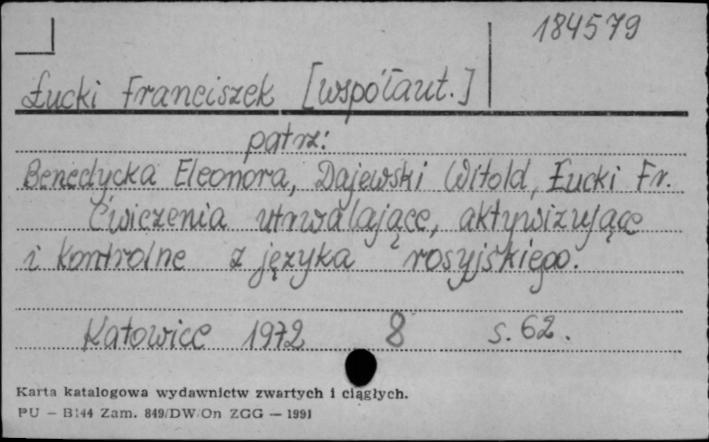 184579
Łucki Franciszek [współaut.]
patrz:
Benedycka Eleonora, Dajewski Witold, Łucki Fr.
Ćwiczenia utrwalające, aktywizujące
i kontrolne z języka rosyjskiego.
Katowice 1972 8 s. 62.
Karta katalogowa wydawnictw zwartych i ciągłych.
PU — B144 Zam. 849/DW/On ZGG — 1991